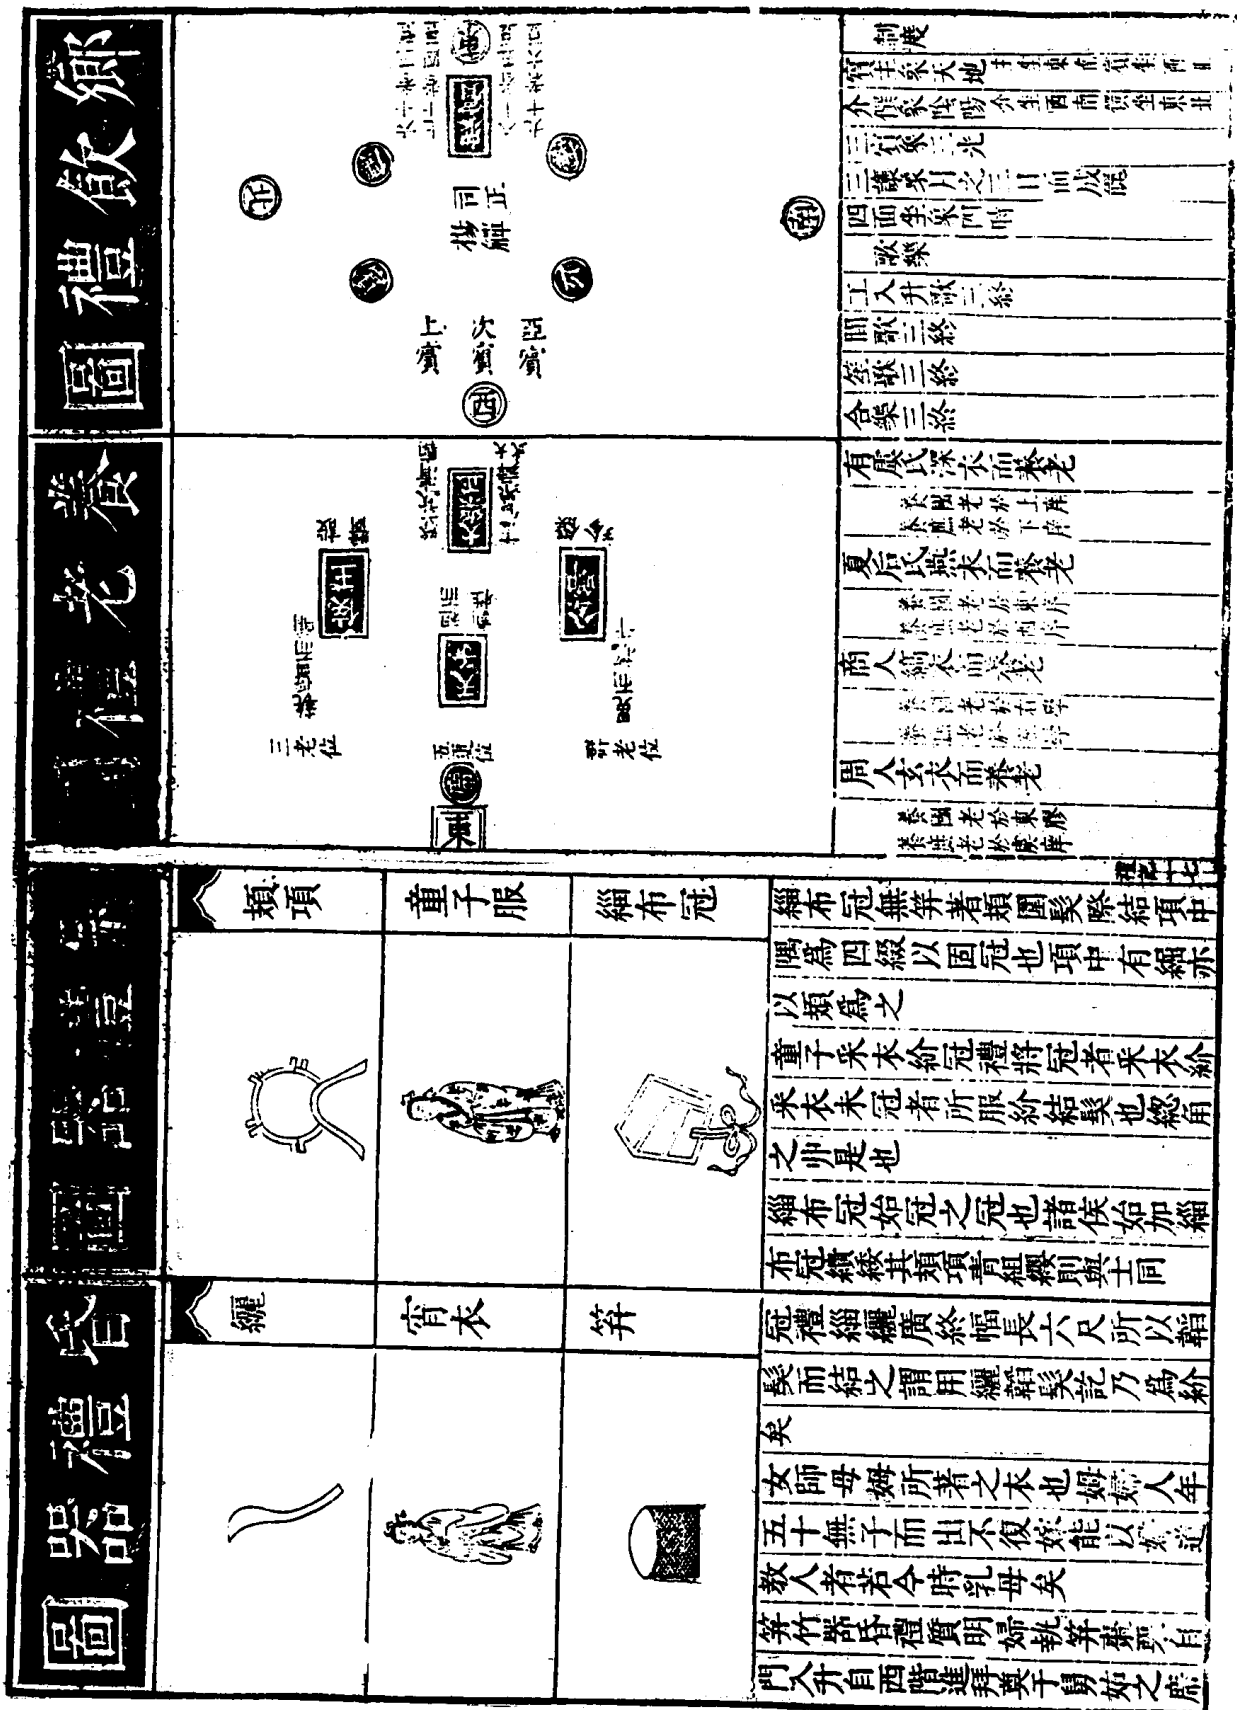 鄉飲禮圖
北
司正
揚觶
南
上賓
次賓
亞賓
西
制度
賓主象天地主坐東南賓坐西北
介僎象陰陽介坐西南僎坐東北
三賓象三光
三讓象月之三日而成魄
四面坐象四時
歌樂
工入升歌三終
間歌三終
笙歌三終
合樂三終
養老禮圖
三老位
五更位
群老位
有虞氏深衣而養老
養國老於上庠
養庶老於下庠
夏后氏燕衣而養老
養國老於東序
養庶老於西序
商人縞衣而養老
養國老於右學
養庶老於左學
周人玄衣而養老
養國老於東膠
養庶老於虞庠
禮記十七
冠禮器圖
頍項
童子服
緇布冠
緇布冠無笄著頍圍髮際結項中
隅為四綴以固冠也項中有䋿亦
以頍為之
童子采衣紒冠禮將冠者采衣紒
采衣未冠者所服紒結髮也總角
之丱是也
緇布冠始冠之冠也諸侯始加緇
布冠繢緌其頍項青組纓則與士同
昏禮器圖
纚
宵衣
笲
冠禮緇纚廣終幅長六尺所以韜
髮而結之謂用纚韜髮訖乃為紒
矣
女師母姆所著之衣也姆婦人年
五十無子而出不復嫁能以婦道
教人者若今時乳母矣
笲竹器昏禮質明婦執笲棗栗自
門入升自西階進拜奠于舅姑之席